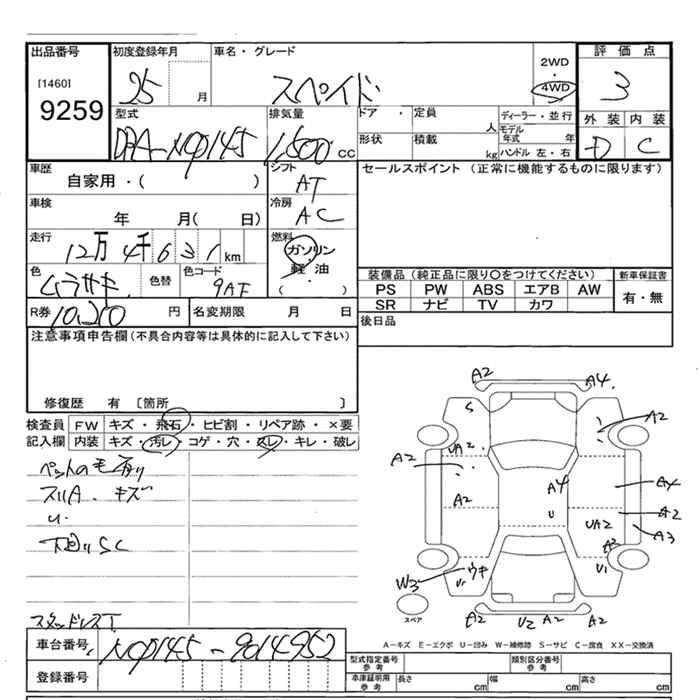 出品番号 初度登録年月 車名・グレード 評価点
[1460] 25 月 スペイド 2WD 4WD 3
9259 型式 排気量 ドア・ 定員 ディーラー・並行 外装 内装
DBA-NCP145 1,500 CC 人 モデル年式 年 D C
形状 積載 kg ハンドル 左・右
車歴 シフト セールスポイント (正常に機能するものに限ります)
自家用・( ) AT
車検 冷房
年 月( 日) AC
走行 燃料
12万4千631 km ガソリン・軽油
色 色替 色コード ( )
ムラサキ 9AF
装備品 (純正品に限り〇をつけてください) 新車保証書
PS PW ABS エアB AW 有・無
SR ナビ TV カワ
R券 10,200 円 名変期限 月 日 後日品
注意事項申告欄 (不具合内容等は具体的に記入して下さい)
修復歴 有 [箇所 ]
検査員記入欄 FW キズ・飛石・ヒビ割・リペア跡・×要
内装 キズ・汚レ・コゲ・穴・スレ・キレ・破レ
ペットの毛有り
スリA キズ
U
下回りSC
スタッドレスT
A2 A4
S A2
UA2
A2
A2 A4 A4
U A2
UA2 A3
A3
W3 U キ U1
スペア
A2 U2 A2 A2
A－キズ E－エクボ U－凹み W－補修跡 S－サビ C－腐食 XX－交換済
車台番号 NCP145-9014952
登録番号
型式指定番号 参考 類別区分番号 参考
車庫証明用 参考 長さ cm 幅 cm 高さ cm